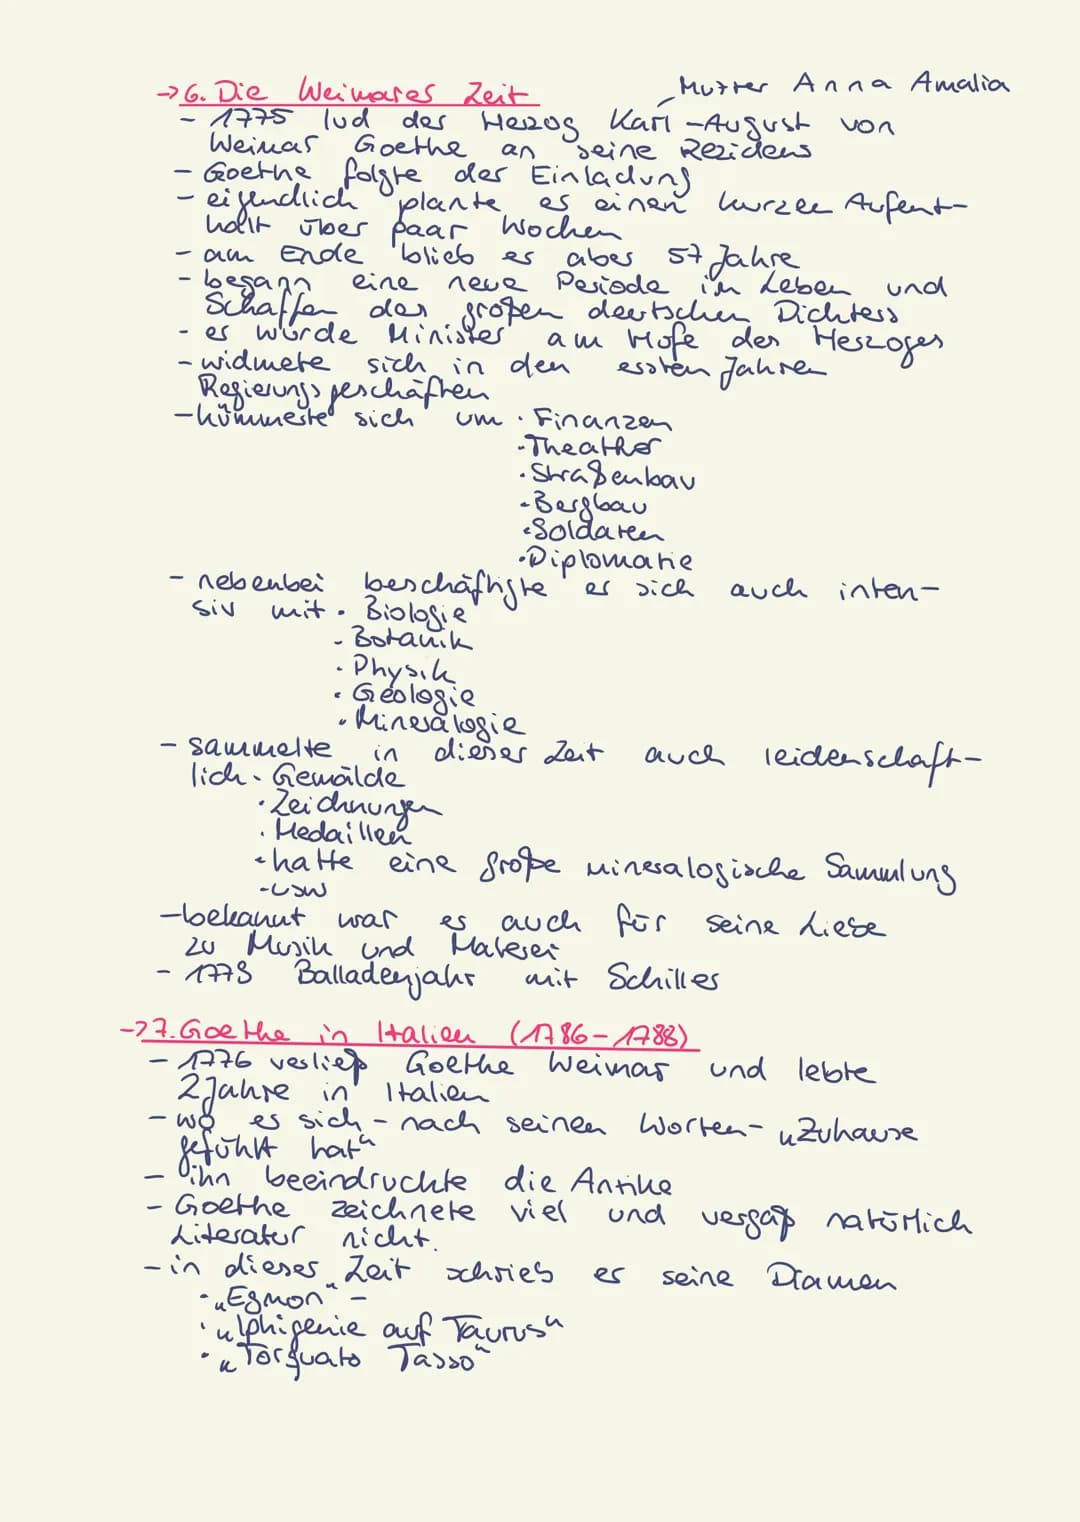 →6. Die Weimarer Zeit
Mutter Anna Amalia
- 1775 lud der Herzog Karl-August von
Weimar Goethe an seine Rezidens
- Goethe folgte der Einladung
- eigendlich plante er einen kurzen Aufent-
halt über paar Wochen
- am Ende blieb er aber 57 Jahre
- begann eine neue Periode im Leben und
Schaffen des großen deutschen Dichters
- er wurde Minister am Hofe des Herzoges
- widmete sich in den ersten Jahren
Regierungsgeschäften
- kümmerte sich um · Finanzen
· Theather
· Straßenbau
· Bergbau
· Soldaten
· Diplomatie
- nebenbei beschäftigte er sich auch inten-
siv mit · Biologie
· Botanik
· Physik
· Geologie
· Mineralogie
- sammelte in dieser Zeit auch leidenschaft-
lich · Gemälde
· Zeichnungen
· Medaillen
· hatte eine große mineralogische Sammlung
- usw
- bekannt war er auch für seine Liebe
zu Musik und Malerei
- 1778 Balladenjahr mit Schiller
→7. Goethe in Italien (1786-1788)
- 1776 verließ Goethe Weimar und lebte
2 Jahre in Italien
- wo er sich - nach seinen Worten - „Zuhause
gefühlt hat“
- ihn beeindruckte die Antike
- Goethe zeichnete viel und vergaß natürlich
Literatur nicht.
- in dieser Zeit schrieb er seine Dramen
· „Egmon“ -
· „Iphigenie auf Taurus“
· „Torquato Tasso“